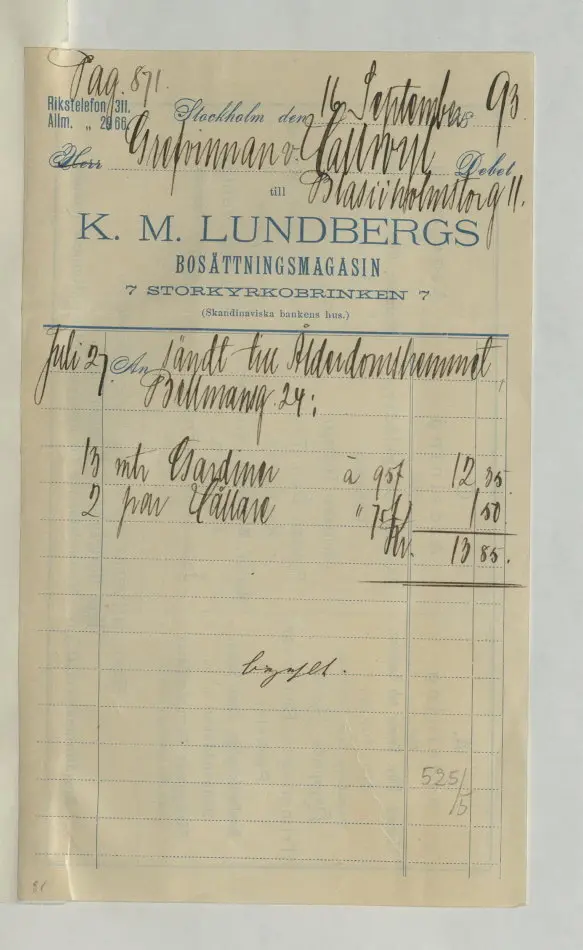 Pag. 871.
Rikstelefon 311.
Allm. „ 2966.
Stockholm den 16 September 1893
Herr Grefvinnan v. Hallwyl Debet
Blasiiholmstorg 11.
till
K. M. LUNDBERGS
BOSÄTTNINGSMAGASIN
7 STORKYRKOBRINKEN 7
(Skandinaviska bankens hus.)
Juli 27. An sändt till Ålderdomshemmet,
Bellmansg 24:
13 mtr Gardiner à 95f 12 35
2 par Hållare " 75f 1 50
Kr. 13 85.
bezahlt.
525/5